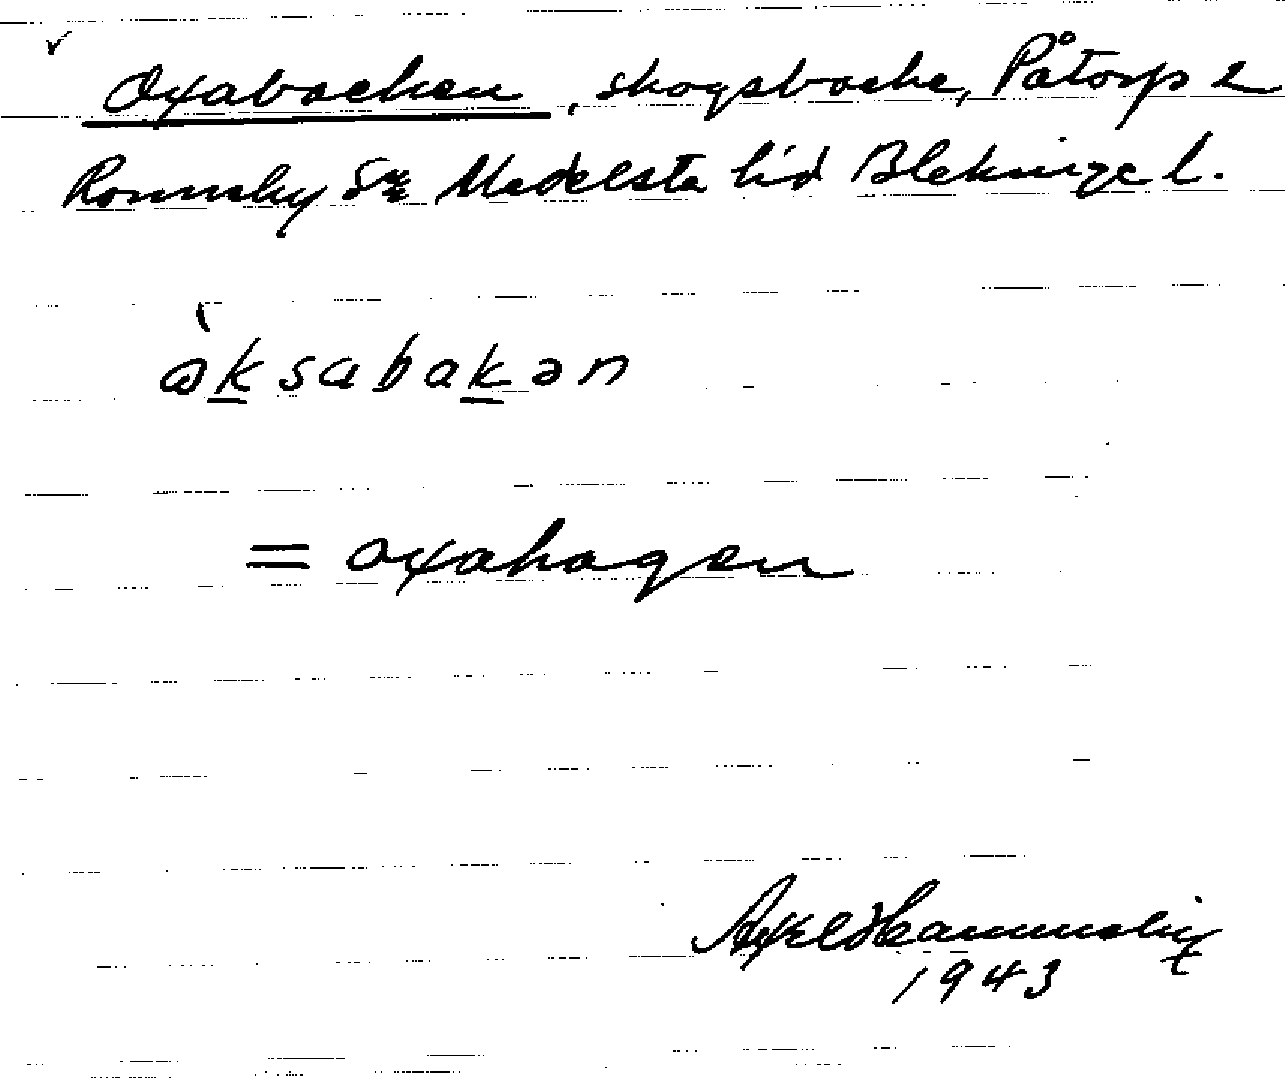 Oxabacken, skogsbacke, Påtorp 2
Ronneby Sn Medelsta hd Blekinge l.
åksabakən
= oxahagen
Axel
1943